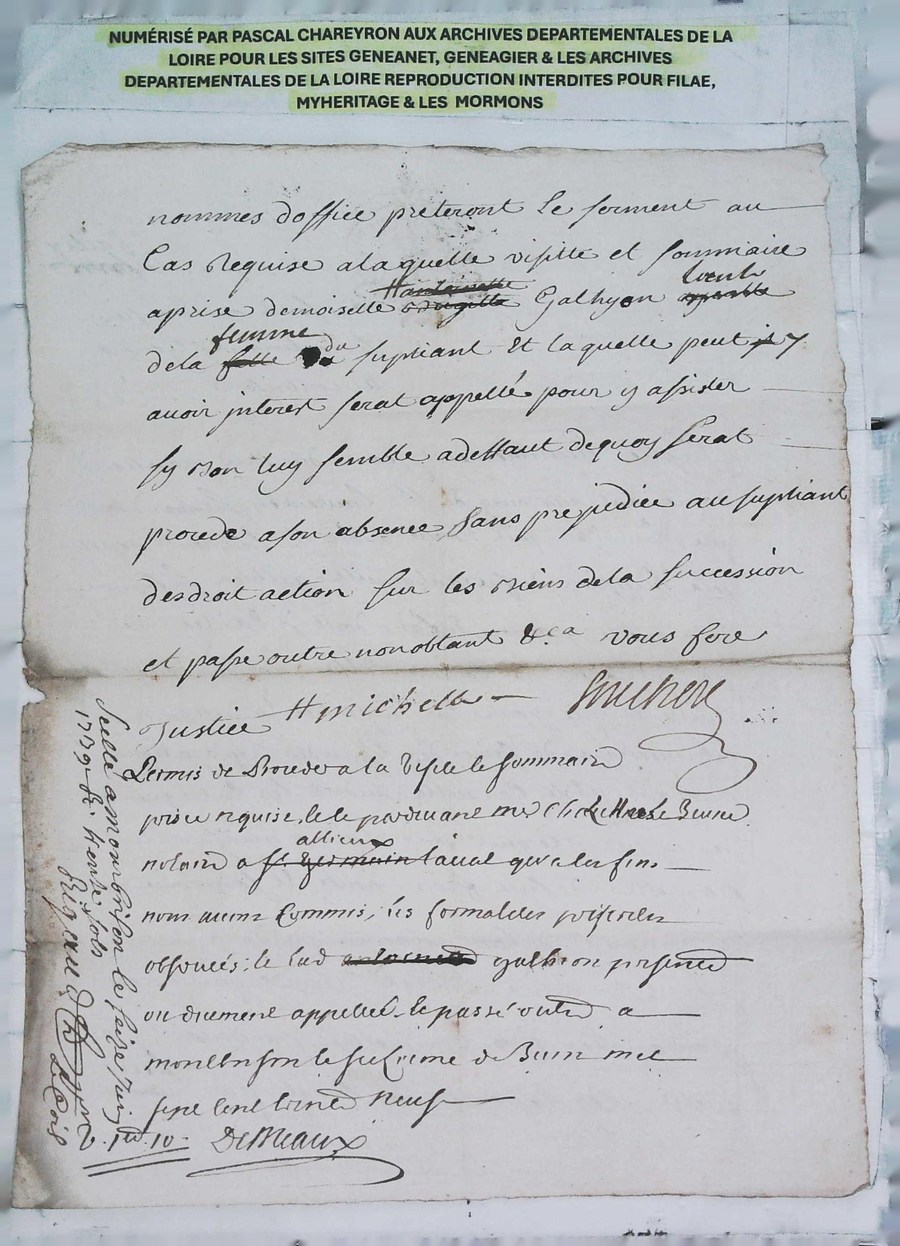 NUMÉRISÉ PAR PASCAL CHAREYRON AUX ARCHIVES DEPARTEMENTALES DE LA
LOIRE POUR LES SITES GENEANET, GENEAGIER & LES ARCHIVES
DEPARTEMENTALES DE LA LOIRE REPRODUCTION INTERDITES POUR FILAE,
MYHERITAGE & LES MORMONS
nommes doffice preteront le serment au
Cas Requise alaquelle visitte et sommaire
aprise demoiselle Galhyon
femme
dela du supliant Et laquelle peut y
avoir jnterest serat appellé pour y assister
sy bon luy semble adeffaut dequoy serat
procede ason absence sans prejudice au supliant
desdroit action sur les biens dela succession
et passe outre nonobtant &ca vous fere
Justice michelle Souchon
Permis de Proceder a la Visitte sommaire
prise requise,
allieux
notaire a St germain laval qua les fins
nous avons Commis, les formalites
observés; le galhion presente
ou duement appellée le passé outre a
montbrison le de Juin mil
sept cent trente neuf
DeMeaux
Scellé amontbrison le seize Juin
1739 Rt trente sols